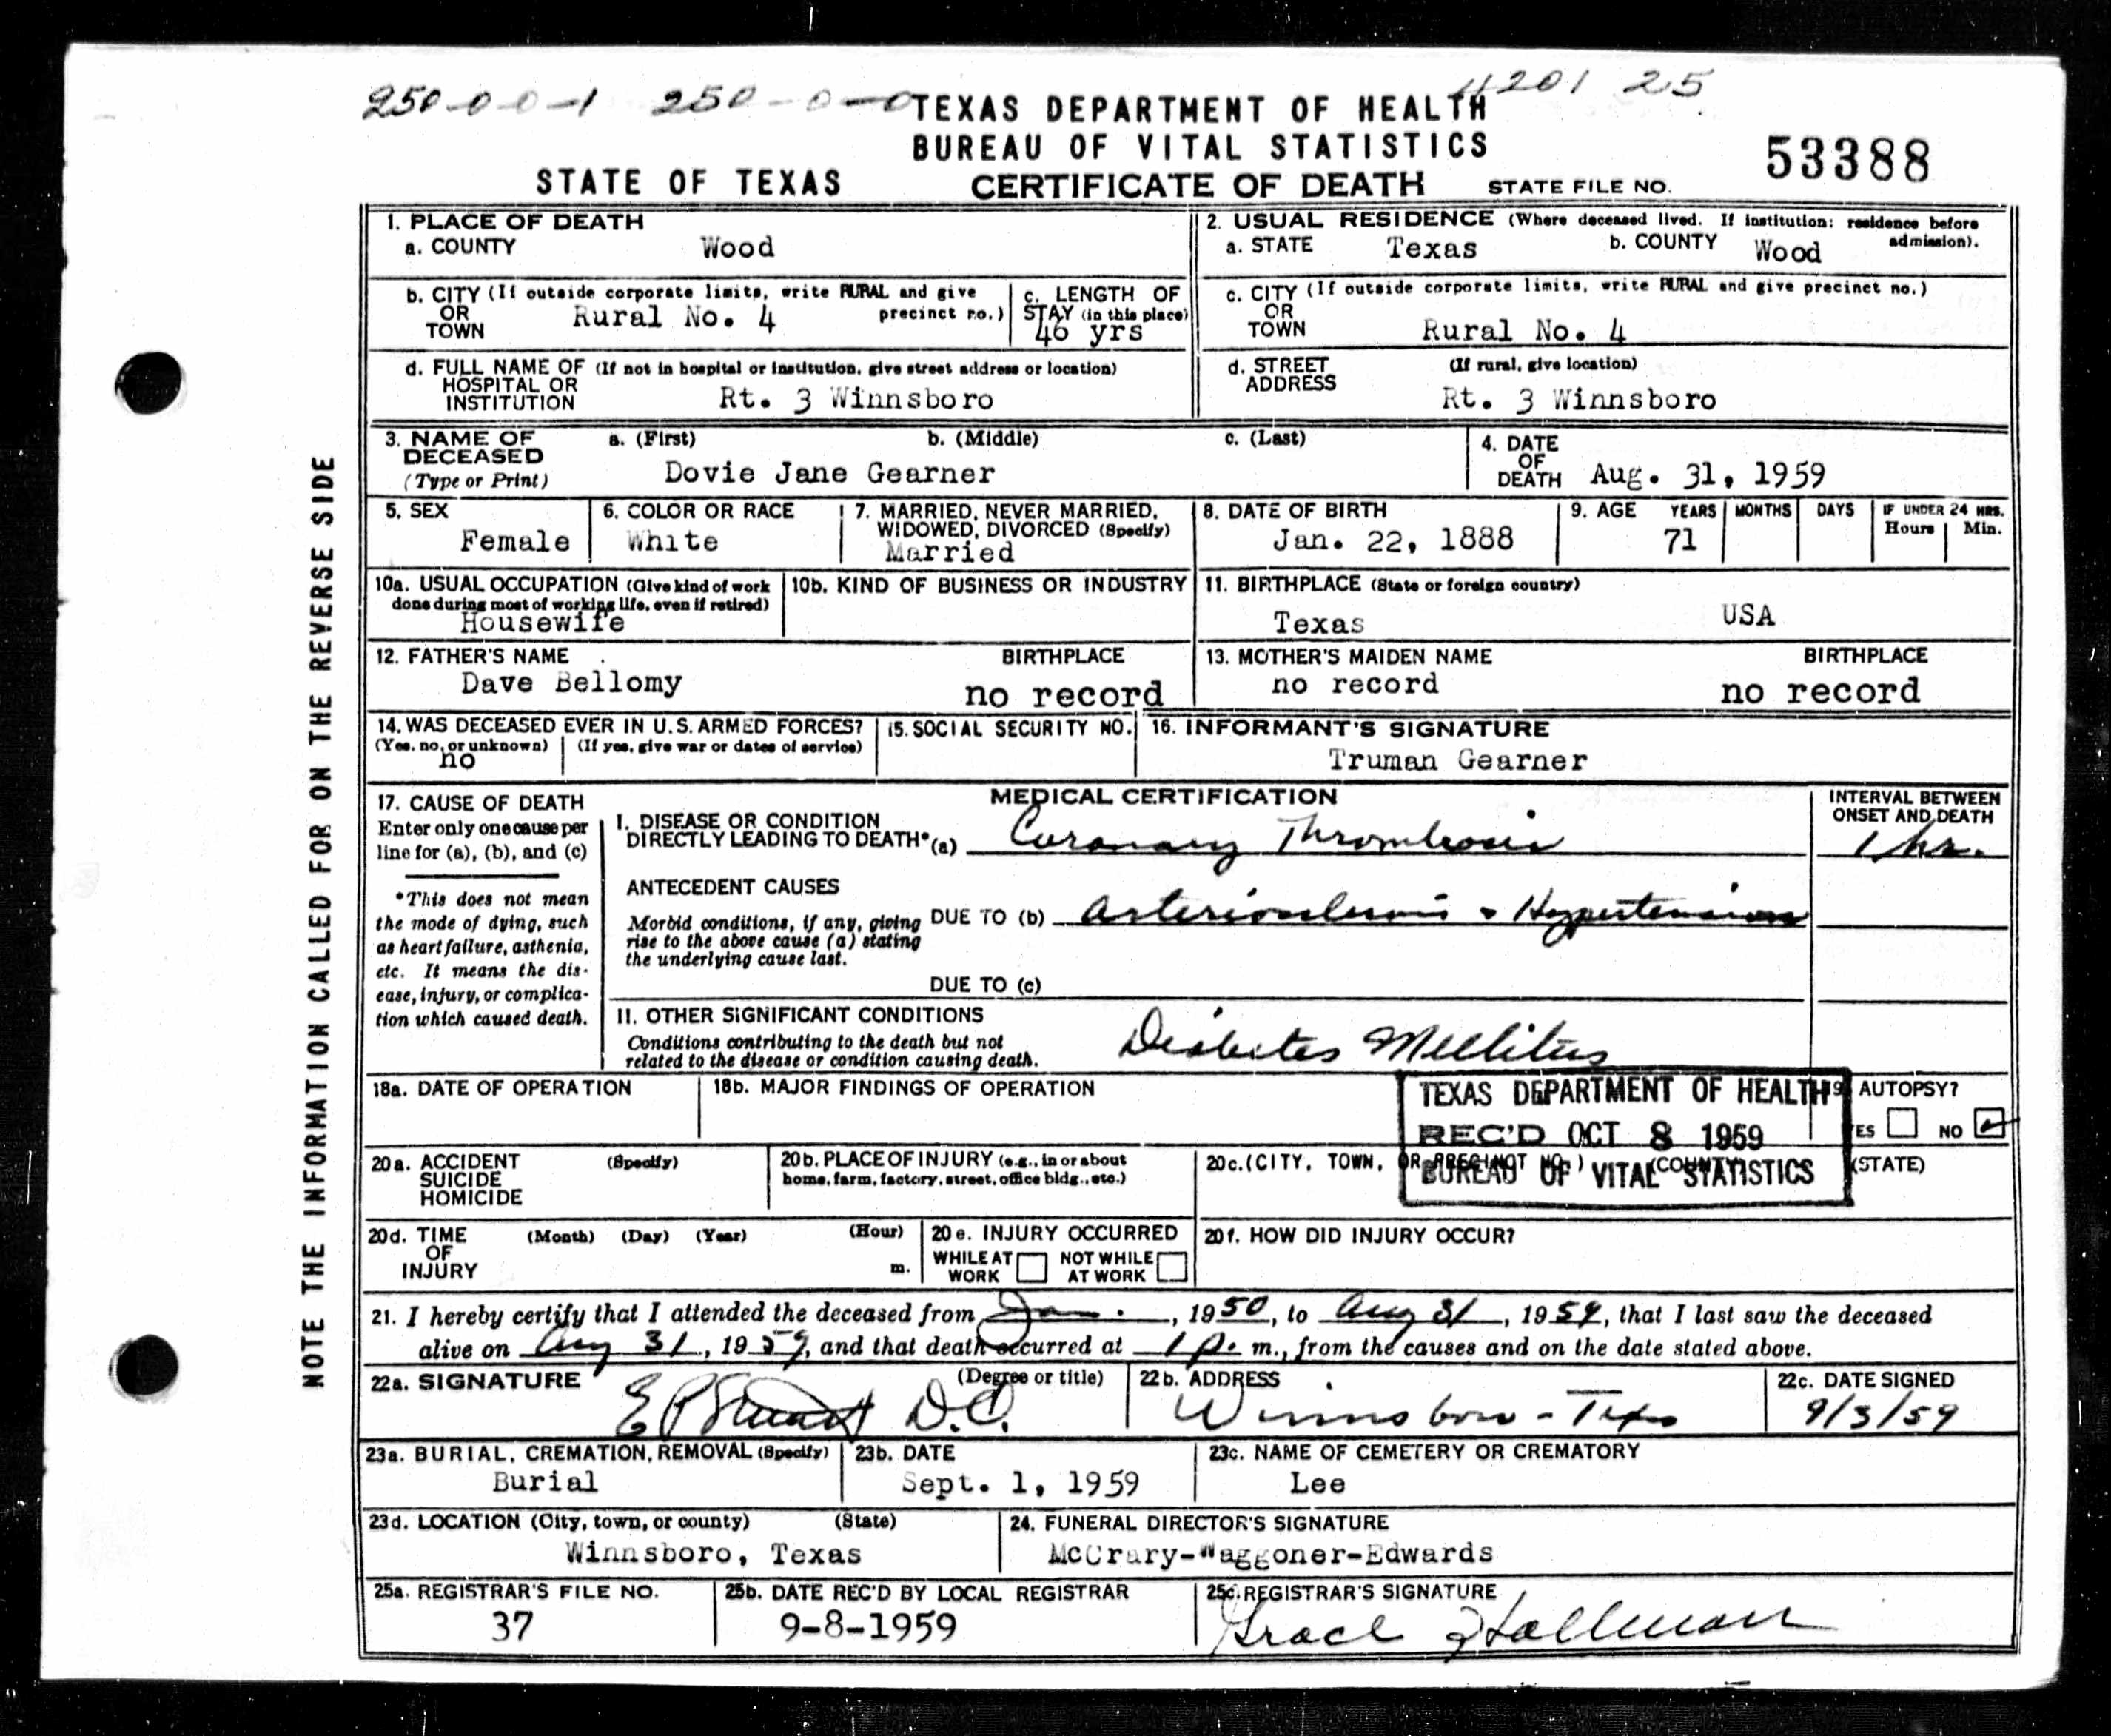 250-0-0-1 250-0-0 4201 25
TEXAS DEPARTMENT OF HEALTH
BUREAU OF VITAL STATISTICS
STATE OF TEXAS CERTIFICATE OF DEATH STATE FILE NO. 53388
NOTE THE INFORMATION CALLED FOR ON THE REVERSE SIDE
1. PLACE OF DEATH
a. COUNTY Wood
2. USUAL RESIDENCE (Where deceased lived. If institution: residence before admission).
a. STATE Texas b. COUNTY Wood
b. CITY (If outside corporate limits, write RURAL and give precinct no.)
OR TOWN Rural No. 4
c. LENGTH OF STAY (in this place)
46 yrs
c. CITY (If outside corporate limits, write RURAL and give precinct no.)
OR TOWN Rural No. 4
d. FULL NAME OF (If not in hospital or institution, give street address or location)
HOSPITAL OR
INSTITUTION Rt. 3 Winnsboro
d. STREET ADDRESS (If rural, give location)
Rt. 3 Winnsboro
3. NAME OF DECEASED (Type or Print) a. (First) b. (Middle) c. (Last)
Dovie Jane Gearner
4. DATE OF DEATH Aug. 31, 1959
5. SEX
Female
6. COLOR OR RACE
White
7. MARRIED, NEVER MARRIED, WIDOWED, DIVORCED (Specify)
Married
8. DATE OF BIRTH
Jan. 22, 1888
9. AGE YEARS MONTHS DAYS IF UNDER 24 HRS. Hours Min.
71
10a. USUAL OCCUPATION (Give kind of work done during most of working life, even if retired)
Housewife
10b. KIND OF BUSINESS OR INDUSTRY
11. BIRTHPLACE (State or foreign country)
Texas USA
12. FATHER'S NAME BIRTHPLACE
Dave Bellomy no record
13. MOTHER'S MAIDEN NAME BIRTHPLACE
no record no record
14. WAS DECEASED EVER IN U.S. ARMED FORCES?
(Yes, no, or unknown) (If yes, give war or dates of service)
no
15. SOCIAL SECURITY NO.
16. INFORMANT'S SIGNATURE
Truman Gearner
17. CAUSE OF DEATH
Enter only one cause per
line for (a), (b), and (c)
*This does not mean
the mode of dying, such
as heart failure, asthenia,
etc. It means the dis-
ease, injury, or complica-
tion which caused death.
MEDICAL CERTIFICATION
INTERVAL BETWEEN ONSET AND DEATH
I. DISEASE OR CONDITION
DIRECTLY LEADING TO DEATH* (a) Coronary Thrombosis 1 hr.
ANTECEDENT CAUSES
Morbid conditions, if any, giving
rise to the above cause (a) stating
the underlying cause last.
DUE TO (b) Arteriosclerosis & Hypertension
DUE TO (c)
II. OTHER SIGNIFICANT CONDITIONS
Conditions contributing to the death but not
related to the disease or condition causing death.
Diabetes Mellitus
18a. DATE OF OPERATION
18b. MAJOR FINDINGS OF OPERATION
19. AUTOPSY?
YES NO
TEXAS DEPARTMENT OF HEALTH
REC'D OCT 8 1959
BUREAU OF VITAL STATISTICS
20a. ACCIDENT (Specify)
SUICIDE
HOMICIDE
20b. PLACE OF INJURY (e.g., in or about
home, farm, factory, street, office bldg., etc.)
20c. (CITY, TOWN, OR PRECINCT NO.) (COUNTY) (STATE)
20d. TIME OF INJURY (Month) (Day) (Year) (Hour) m.
20e. INJURY OCCURRED
WHILE AT WORK NOT WHILE AT WORK
20f. HOW DID INJURY OCCUR?
21. I hereby certify that I attended the deceased from Jan. , 1950, to Aug 31, 1959, that I last saw the deceased
alive on Aug 31, 1959, and that death occurred at 1 p. m., from the causes and on the date stated above.
22a. SIGNATURE (Degree or title)
D.O.
22b. ADDRESS
Winnsboro - Texas
22c. DATE SIGNED
9/3/59
23a. BURIAL, CREMATION, REMOVAL (Specify)
Burial
23b. DATE
Sept. 1, 1959
23c. NAME OF CEMETERY OR CREMATORY
Lee
23d. LOCATION (City, town, or county) (State)
Winnsboro, Texas
24. FUNERAL DIRECTOR'S SIGNATURE
McCrary-Waggoner-Edwards
25a. REGISTRAR'S FILE NO.
37
25b. DATE REC'D BY LOCAL REGISTRAR
9-8-1959
25c. REGISTRAR'S SIGNATURE
Grace Hallman